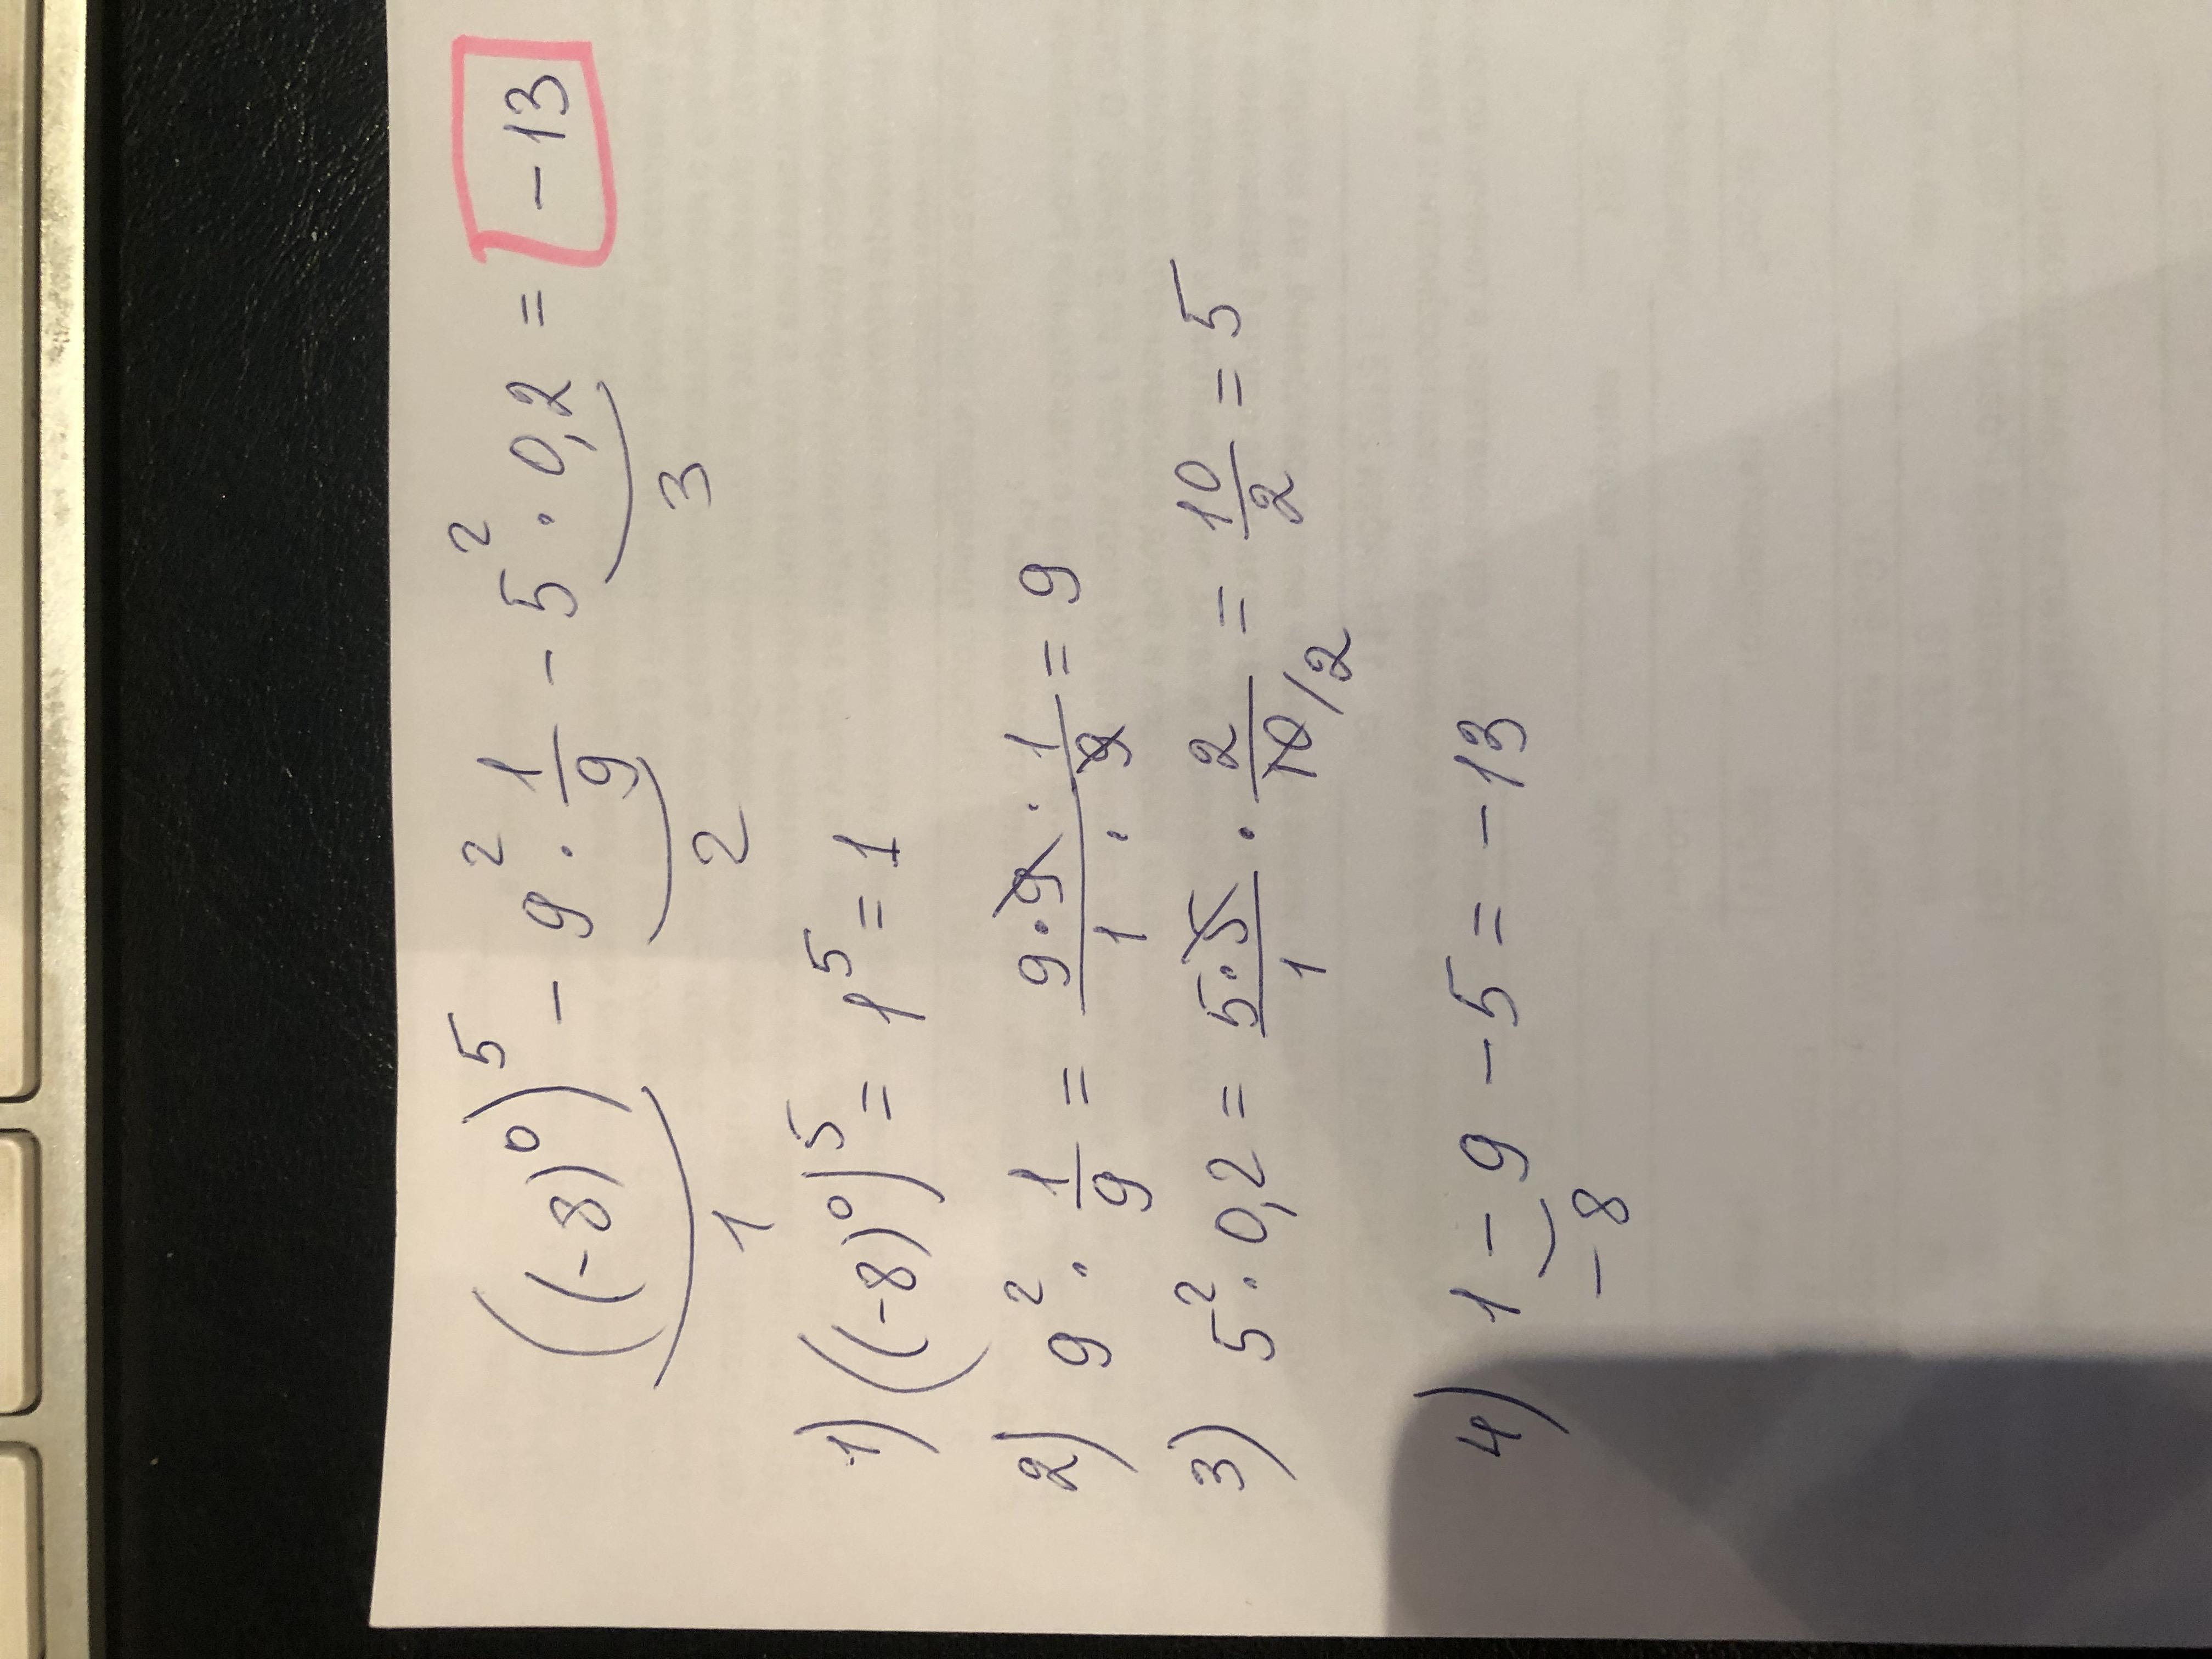 ((-8)⁰)⁵ - 9² · 1/9 - 5² · 0,2 = -13
1 2 3
1) ((-8)⁰)⁵ = 1⁵ = 1
2) 9² · 1/9 = 9·9/1 · 1/9 = 9
3) 5² · 0,2 = 5·5/1 · 2/10/2 = 10/2 = 5
4) 1 - 9 - 5 = -13
-8